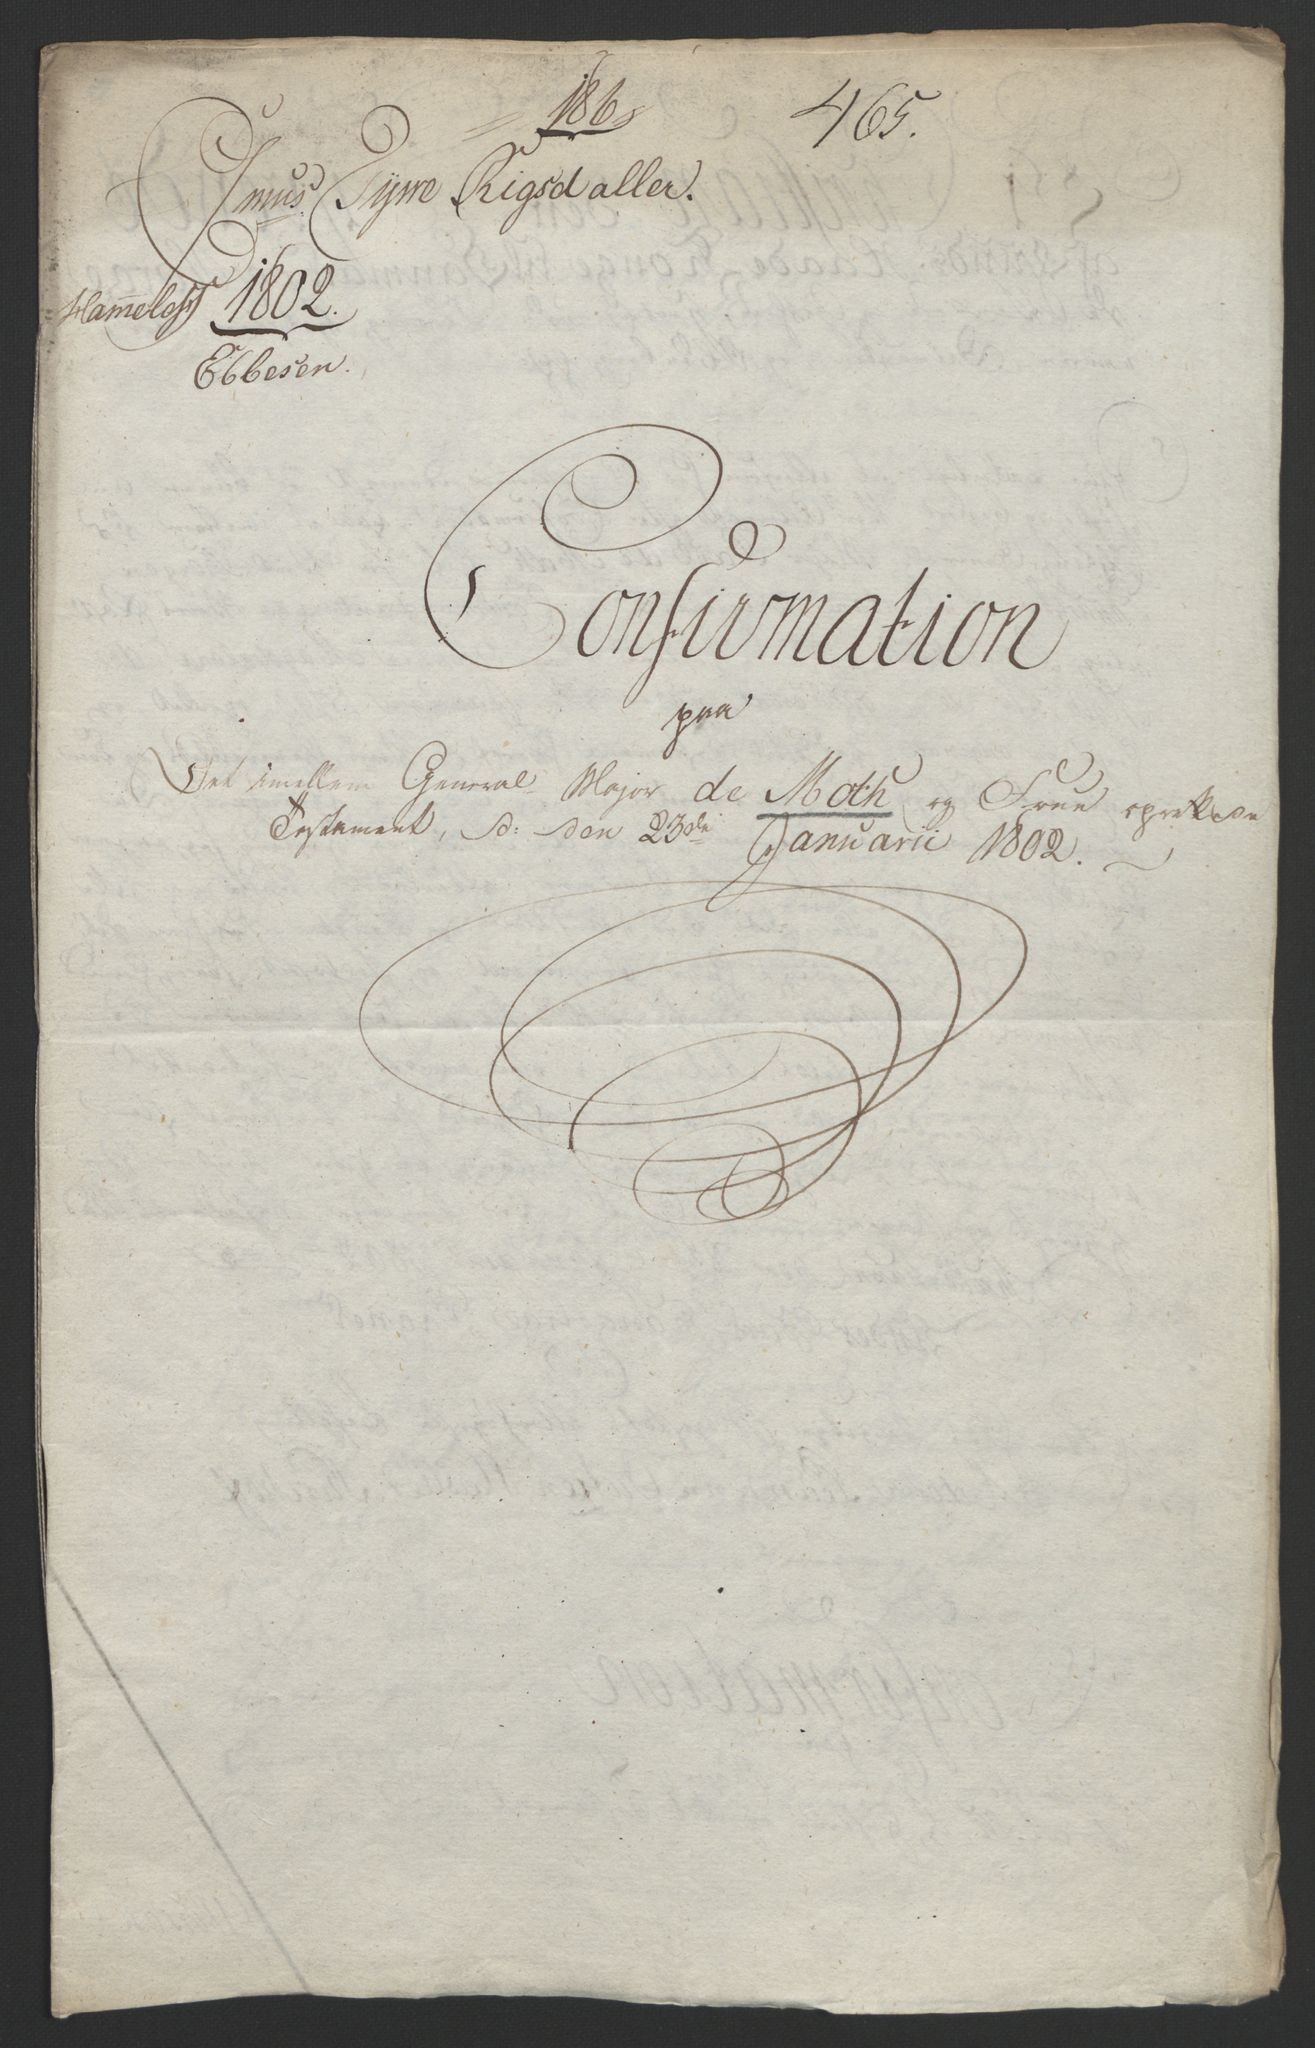 186
465.
Tyve Rigsdaller.
1802.
Ebbesen.
Confirmation
paa
Det imellem General Major de Moth og Frue oprettede
Testament, D: den 23de Januarii 1802.